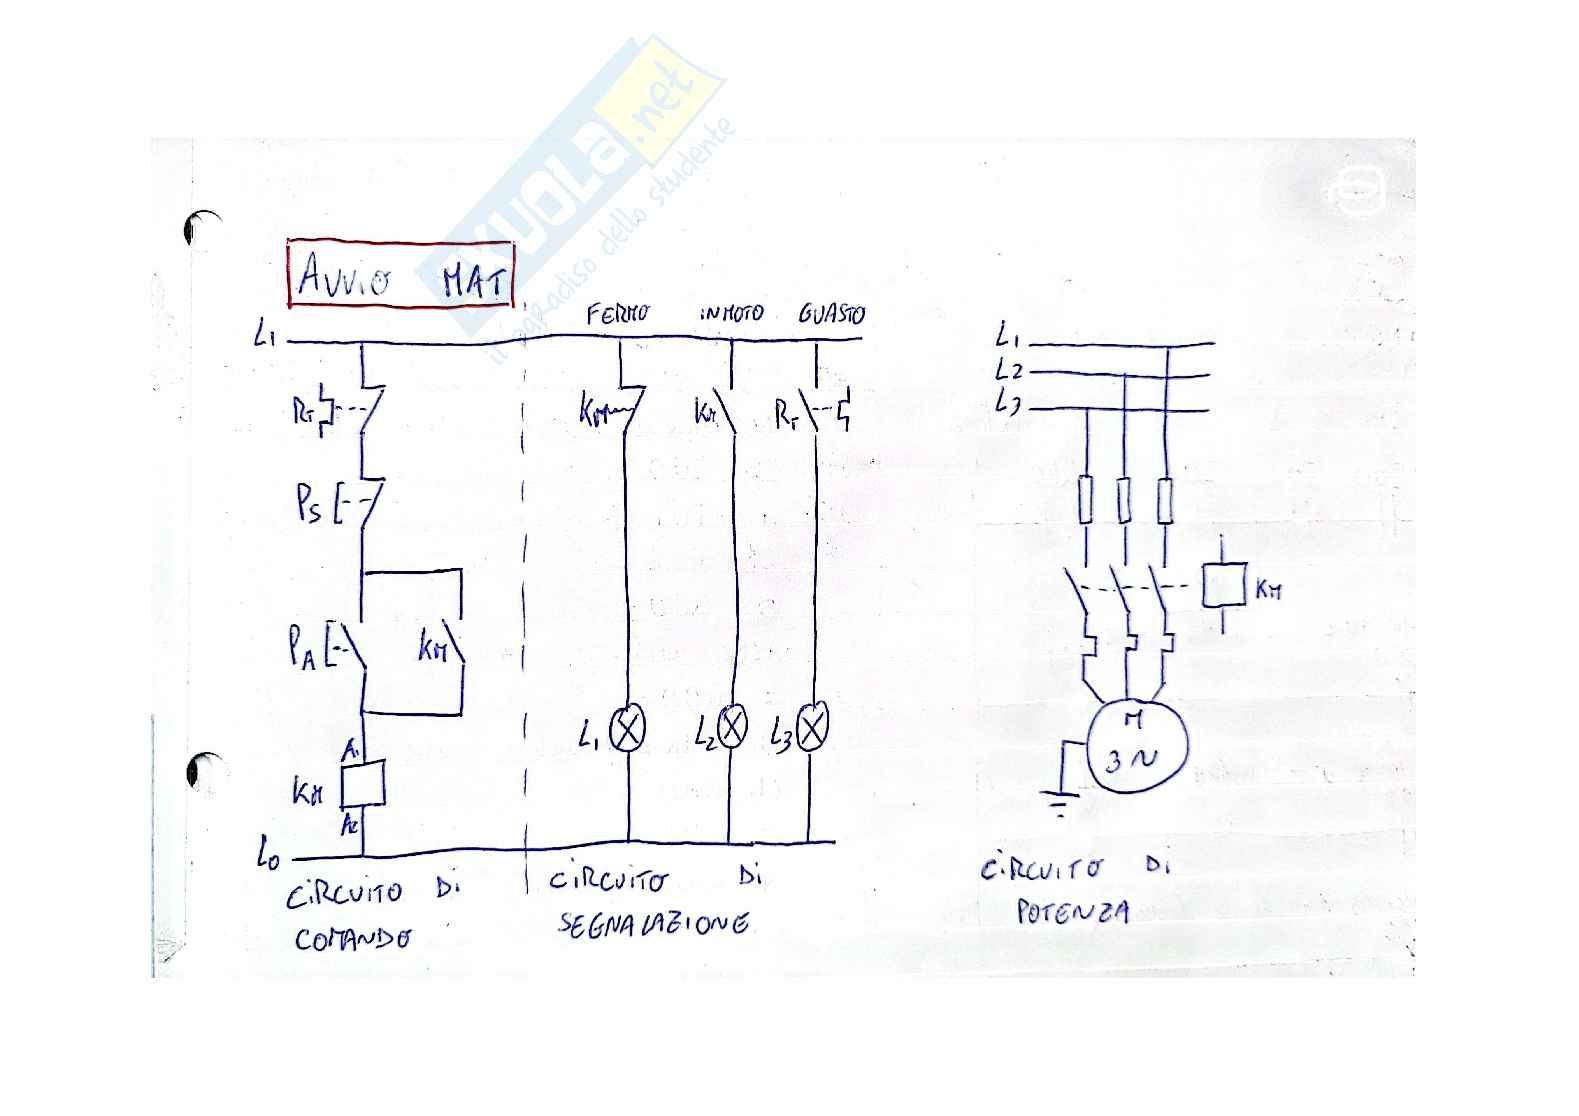 SKUOLA.net
il paradiso dello studente
AVVIO MAT
FERMO IN MOTO GUASTO
L1
RT
KM
KM
RT
PS
PA
KM
L1
L2
L3
A1
KM
A2
L0
CIRCUITO DI
COMANDO
CIRCUITO DI
SEGNALAZIONE
L1
L2
L3
KM
M
3~
CIRCUITO DI
POTENZA